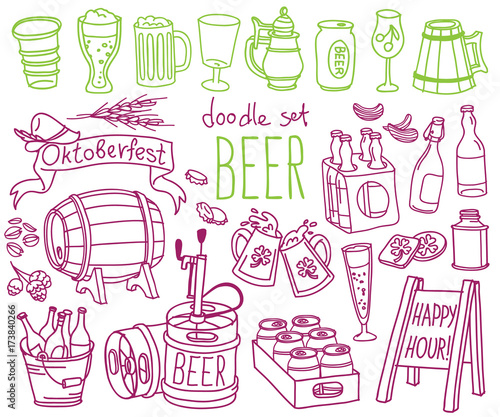 BEER
doodle set
BEER
Oktoberfest
BEER
HAPPY
HOUR!
173840266